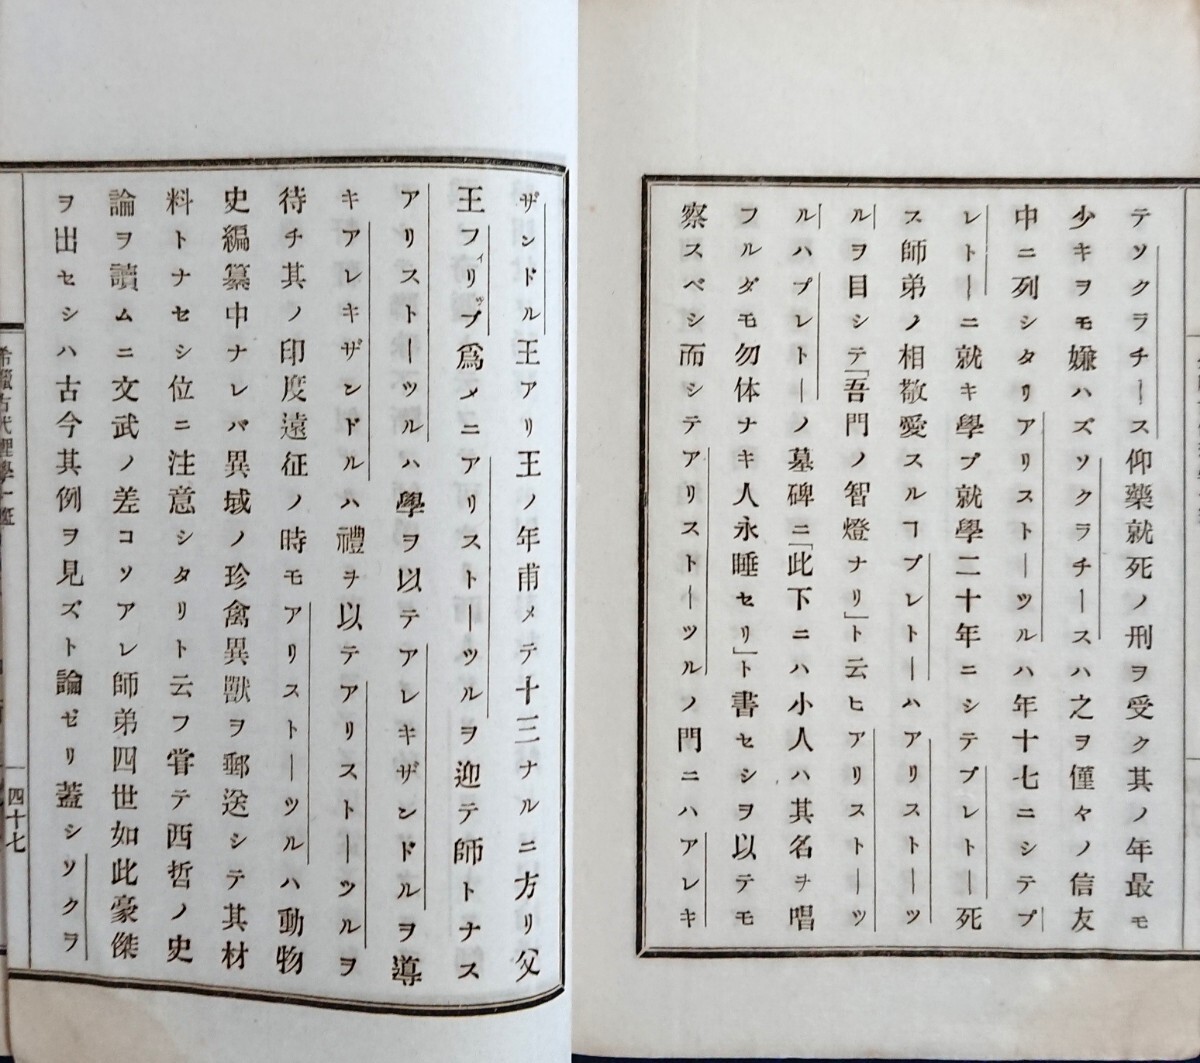 テソクラチース仰藥就死ノ刑ヲ受ク其ノ年最モ
少キヲモ嫌ハズソクラチースハ之ヲ僅々ノ信友
中ニ列シタリアリストーツルハ年十七ニシテプ
レトーニ就キ學ブ就學二十年ニシテプレトー死
ス師弟ノ相敬愛スルヿプレトーハアリストーツ
ルヲ目シテ「吾門ノ智燈ナリ」ト云ヒアリストーツ
ルハプレトーノ墓碑ニ「此下ニハ小人ハ其名ヲ唱
フルダモ勿体ナキ人永睡セリ」ト書セシヲ以テモ
察スベシ而シテアリストーツルノ門ニハアレキ
ザンドル王アリ王ノ年甫メテ十三ナルニ方リ父
王フィリップ爲メニアリストーツルヲ迎テ師トナス
アリストーツルハ學ヲ以テアレキザンドルヲ導
キアレキザンドルハ禮ヲ以テアリストーツルヲ
待チ其ノ印度遠征ノ時モアリストーツルハ動物
史編纂中ナレバ異域ノ珍禽異獸ヲ郵送シテ其材
料トナセシ位ニ注意シタリト云フ甞テ西哲ノ史
論ヲ讀ムニ文武ノ差コソアレ師弟四世如此豪傑
ヲ出セシハ古今其例ヲ見ズト論ゼリ蓋シソクラ
希臘古代理學一斑
四十七